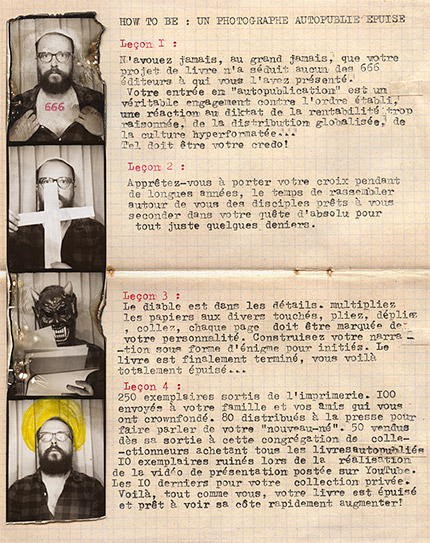 HOW TO BE : UN PHOTOGRAPHE AUTOPUBLIE EPUISE
Leçon I :
N'avouez jamais, au grand jamais, que votre
projet de livre n'a séduit aucun des 666
éditeurs à qui vous l'avez présenté.
Votre entrée en "autopublication" est un
véritable engagement contre l'ordre établi,
une réaction au diktat de la rentabilité trop
raisonnée, de la distribution globalisée, de
la culture hyperformatée...
Tel doit être votre credo!
666
Leçon 2 :
Apprêtez-vous à porter votre croix pendant
de longues années, le temps de rassembler
autour de vous des disciples prêts à vous
seconder dans votre quête d'absolu pour
tout juste quelques deniers.
Leçon 3 :
Le diable est dans les détails. multipliez
les papiers aux divers touchés, pliez, dépliez
, collez, chaque page doit être marquée de
votre personnalité. Construisez votre narra -
-tion sous forme d'énigme pour initiés. Le
livre est finalement terminé, vous voilà
totalement épuisé...
Leçon 4 :
250 exemplaires sortis de l'imprimerie. I00
envoyés à votre famille et vos amis qui vous
ont crownfondé. 80 distribués à la presse pour
faire parler de votre "nouveau-né". 50 vendus
dès sa sortie à cette congrégation de colle-
-ctionneurs achetant tous les livres autopubliés
I0 exemplaires ruinés lors de la réalisation
de la vidéo de présentation postée sur YouTube.
Les I0 derniers pour votre collection privée.
Voilà, tout comme vous, votre livre est épuisé
et prêt à voir sa côte rapidement augmenter!